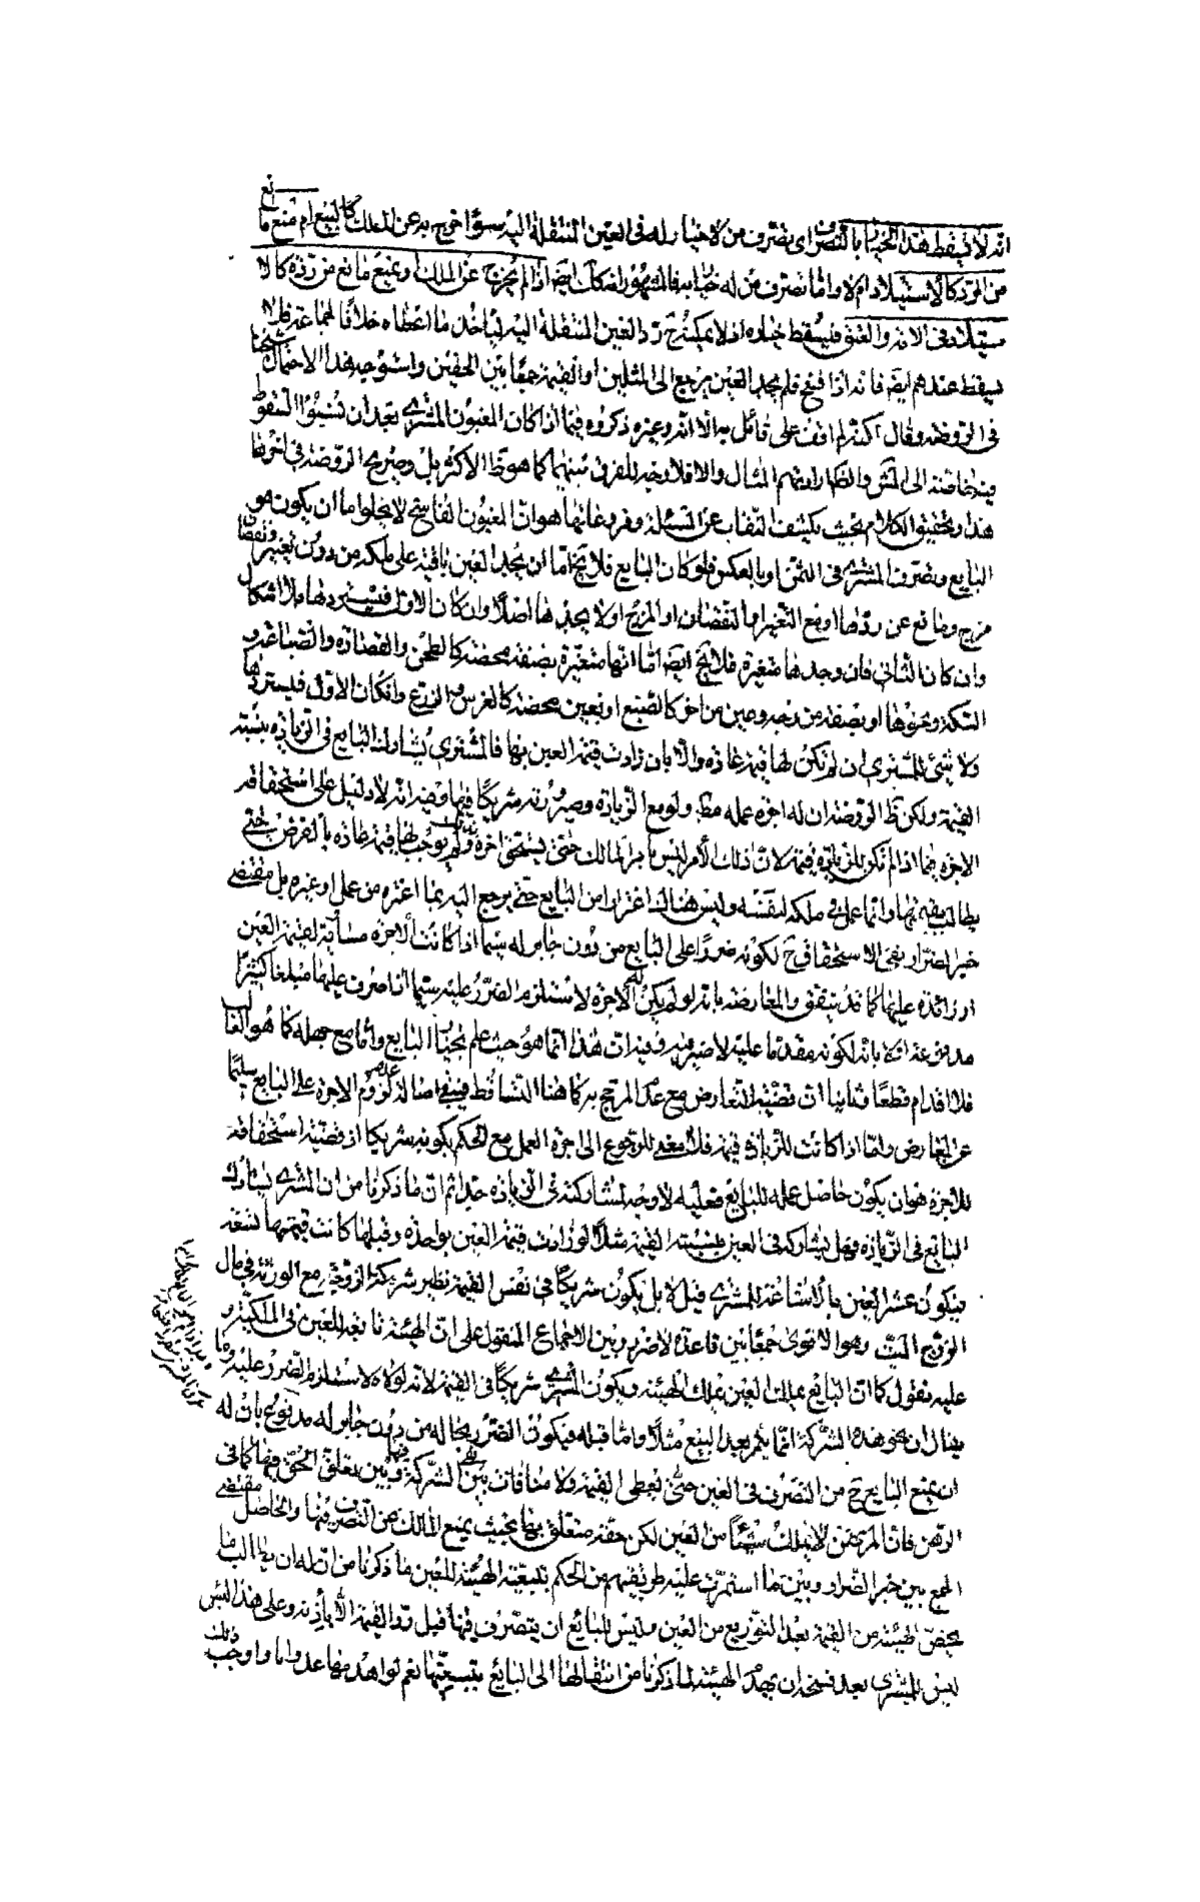 انه لا يسقط هذا الخيار بالتصرف اى بتصرف من لا خيار له فى العين المنتقلة اليه سواء اخرج به عن الملك كالبيع ام منع مانع
من الرد كالاستيلاد ام لا واما تصرف من له خيار به فالمشهور انه كك ايضا اذا لم يخرج عن الملك او يمنع مانع من رده كالا
ستيلاد فى الامة والعتق فيسقط خياره اذ لا يمكنه ح رد العين المنتقلة اليه ليأخذ ما اعطاه خلافا لجماعة فلا
يسقط عندهم ايضا فانه اذا فسخ فلم يجد العين يرجع الى المثل او القيمة جمعا بين الحقين واستوجه هذا الاحتمال شيخنا
فى الروضة وقال لكن لم اقف على قائل به الا انه وغيره ذكروه فيما اذا كان المغبون المشترى بعد ان نسبوا السقوط
فيه خاصة الى المش والظ ارادتهم المثال والا فلا وجه للفرق بينهما كما هو ظ الاكثر بل وصريح الروضة فى اخرها
هذا وتحقيق الكلام بحيث يكشف النقاب عن المسئلة وفروعاتها هو ان المغبون الفاسخ لا يخلو اما ان يكون هو
البايع وتصرف المشترى فى الثمن او بالعكس فلو كان البايع فلا يخ اما ان يجد العين باقية على ملكه من دون تغيير ونقصان
مزج ومانع عن ردها او مع التغيير او النقصان او المزج او لا يجدها اصلا وان كان الاول فيستردها بلا اشكال
وان كان الثانى فان وجدها متغيرة فلا يخ ايضا اما انها متغيرة بصفة محضة كالطحن والقصارة والصياغة و
السكة ونحوها او بصفة من وجه وعين من اخر كالصبغ او بعين محضة كالغرس والزرع وان كان الاول فيستردها
ولا شئ للمشترى ان لم تكن لها قيمة عادة والا بان زادت قيمة العين بها فالمشترى يشارك البايع فى الزيادة بنسبة
القيمة ولكن ظ الروضة ان له اجرة عمله مط ولو مع الزيادة وصيرورته شريكا فيها وفيه انه لا دليل على استحقاقه
الاجرة فيما اذا لم تكن للزيادة قيمة لان ذلك الأمر ليس بامر المالك حتى يستحق اجرة ولم يوجب لها قيمة عادة بالفرض حتى
يطالب بقيمتها وانما عمل فى ملكه لنفسه وليس هناك اغرار من البايع حتى يرجع اليه بما اغتره من عمل او غيره بل مقتضى
خبر الضرار نفى الاستحقاق ح لكونه ضررا على البايع من دون جابر له سيما اذا كانت الاجرة مساوية لقيمة العين
او زائدة عليها كما قد يتفق والمعارضة بانه لو لم يكن له الاجرة لاستلزم الضرر عليه سيما اذا صرف عليها مبلغا كثيرا
مدفوعة اولا بانه لكونه مقدما عليه لا ضير فيه وفيه ان هذا انما هو حيث علم بخيار البايع واما مع جهله كما هو الغالب
فلا اقدام قطعا وثانيا ان قضية التعارض مع عدم المرجح به كما هنا التساقط فيبقى اصالة عدم لزوم الاجرة على البايع سليما
عن المعارض واما اذا كانت للزيادة قيمة فلا معنى للرجوع الى اجرة العمل مع الحكم بكونه شريكا اذ قضية استحقاقه
للاجرة هو ان يكون حاصل عمله للبايع فعليه لا وجه لمشاركته فى الزيادة جدا ثم ان ما ذكرنا من ان المشترى يشارك
البايع فى الزيادة فهل يشاركه فى العين بنسبة القيمة مثلا لو زادت قيمة العين بواحدة وقبلها كانت قيمتها تسعة
فيكون عشر العين بالاشاعة للمشترى قيل لا بل يكون شريكا فى نفس القيمة نظير شركة الزوجة مع الورثة فى مال
الزوج الميت وهو الاقوى جمعا بين قاعدة لا ضرر وبين الاجماع المنقول على ان الهيئة تابعة للعين فى الملكية و
عليه نقول كما ان البايع يملك العين يملك الهيئة ويكون المشترى شريكا فى القيمة لانه لولاه لاستلزم الضرر عليه وما
يقال ان نحو هذه الشركة انما يثمر بعد البيع مثلا واما قبله فيكون الضرر بحاله من دون جابر له مدفوع بان له
ان يمنع البايع ح من التصرف فى العين حتى يعطى القيمة ولا منافات بين نفى الشركة فيها وبين تعلق الحق فيها كما فى
الرهن فان المرتهن لا يملك شيئا من العين لكن حقه متعلق بها بحيث يمنع المالك من التصرف فيها والحاصل مقتضى
الجمع بين خبر الضرار وبين ما استمرت عليه طريقتهم من الحكم بتبعية الهيئة للعين ما ذكرنا من ان له ان يطالب ما
يخص الهيئة من القيمة بعد التوزيع من العين وليس للبائع ان يتصرف فيها قبل رد القيمة الا باذنه وعلى هذا ليس
ليس للمشترى بعد فسخه ان يهدم الهيئة لما ذكرنا من انتقالها الى البائع بتبعيتها نعم لو اهدمها عدوانا واوجب ذلك